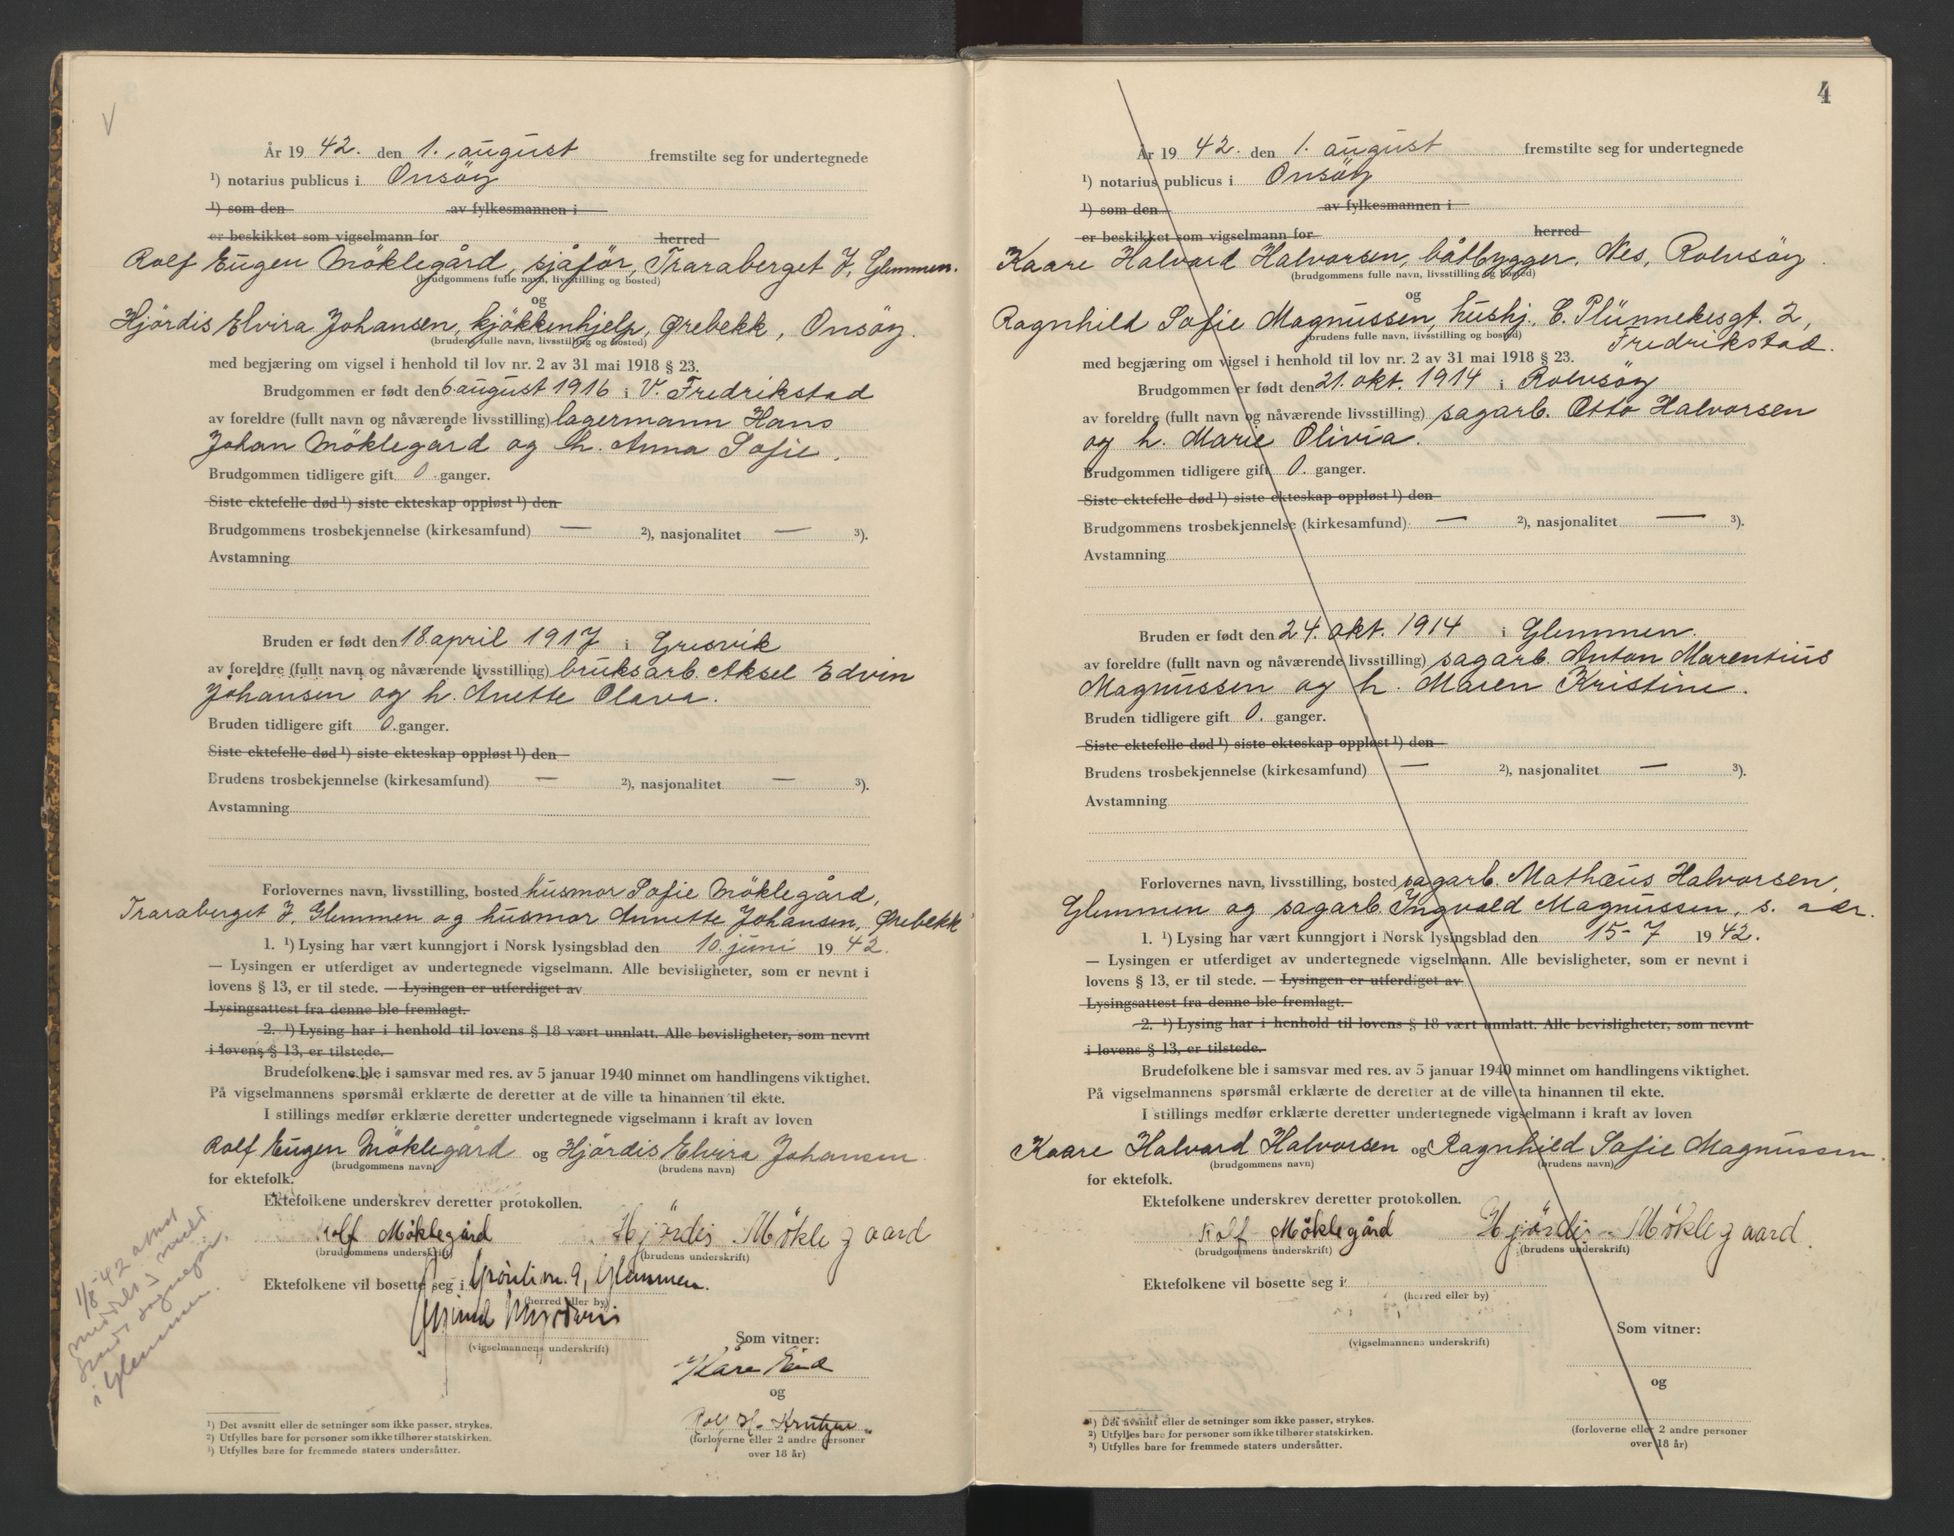 År 19 42. den 1. august fremstilte seg for undertegnede
¹) notarius publicus i Onsöy
¹) som den av fylkesmannen i
er beskikket som vigselmann for herred
Rolf Eugen Möklegård, sjåför, Traraberget 7, Glemmen.
(brudgommens fulle navn, livsstilling og bosted)
og
Hjördis Elvira Johansen, kjökkenhjelp, Ørebekk, Onsöy.
(brudens fulle navn, livsstilling og bosted)
med begjæring om vigsel i henhold til lov nr. 2 av 31 mai 1918 § 23.
Brudgommen er født den 6 august 1916 i V. Fredrikstad
av foreldre (fullt navn og nåværende livsstilling) lagermann Hans
Johan Möklegård og h. Anna Sofie.
Brudgommen tidligere gift 0. ganger.
Siste ektefelle død ¹) siste ekteskap oppløst ¹) den
Brudgommens trosbekjennelse (kirkesamfund) — ²), nasjonalitet — ³).
Avstamning
Bruden er født den 18. april 1917 i Gresvik
av foreldre (fullt navn og nåværende livsstilling) bruksarb. Aksel Edvin
Johansen og h. Anette Olava.
Bruden tidligere gift 0. ganger.
Siste ektefelle død ¹) siste ekteskap oppløst ¹) den
Brudens trosbekjennelse (kirkesamfund) — ²), nasjonalitet — ³).
Avstamning
Forlovernes navn, livsstilling, bosted husmor Sofie Möklegård,
Traraberget 7, Glemmen og husmor Annette Johansen, Ørebekk
1. ¹) Lysing har vært kunngjort i Norsk lysingsblad den 10. juni 19 42.
— Lysingen er utferdiget av undertegnede vigselmann. Alle bevisligheter, som er nevnt i
lovens § 13, er til stede. — Lysingen er utferdiget av
Lysingsattest fra denne ble fremlagt.
2. ¹) Lysing har i henhold til lovens § 18 vært unnlatt. Alle bevisligheter, som nevnt
i lovens § 13, er tilstede.
Brudefolkene ble i samsvar med res. av 5 januar 1940 minnet om handlingens viktighet.
På vigselmannens spørsmål erklærte de deretter at de ville ta hinannen til ekte.
I stillings medfør erklærte deretter undertegnede vigselmann i kraft av loven
Rolf Eugen Möklegård og Hjördis Elvira Johansen
(brudgommens navn) (brudens navn)
for ektefolk.
Ektefolkene underskrev deretter protokollen.
Rolf Möklegård Hjördis Möklegaard
(brudgommens underskrift) (brudens underskrift)
Ektefolkene vil bosette seg i Grönlivn. 9, Glemmen.
(herred eller by)
(vigselmannens underskrift)
Som vitner:
Kåre
og
Rolf H.
(forloverne eller 2 andre personer
over 18 år)
1/8-42
i Glemmen.
¹) Det avsnitt eller de setninger som ikke passer, strykes.
²) Utfylles bare for personer som ikke tilhører statskirken.
³) Utfylles bare for fremmede staters undersåtter.
4
År 19 42. den 1. august fremstilte seg for undertegnede
¹) notarius publicus i Onsöy
¹) som den av fylkesmannen i
er beskikket som vigselmann for herred
Kaare Halvard Halvorsen, båtbygger, Nes, Rolvsöy.
(brudgommens fulle navn, livsstilling og bosted)
og
Ragnhild Sofie Magnussen, hushj. C. Plünnekesgt. 2,
(brudens fulle navn, livsstilling og bosted)
Fredrikstad.
med begjæring om vigsel i henhold til lov nr. 2 av 31 mai 1918 § 23.
Brudgommen er født den 21. okt. 1914 i Rolvsöy
av foreldre (fullt navn og nåværende livsstilling) sagarb. Otto Halvorsen
og h. Marie Olivia.
Brudgommen tidligere gift 0. ganger.
Siste ektefelle død ¹) siste ekteskap oppløst ¹) den
Brudgommens trosbekjennelse (kirkesamfund) — ²), nasjonalitet — ³).
Avstamning
Bruden er født den 24. okt. 1914 i Glemmen.
av foreldre (fullt navn og nåværende livsstilling) sagarb. Anton Marentius
Magnussen og h. Maren Kristine.
Bruden tidligere gift 0. ganger.
Siste ektefelle død ¹) siste ekteskap oppløst ¹) den
Brudens trosbekjennelse (kirkesamfund) — ²), nasjonalitet — ³).
Avstamning
Forlovernes navn, livsstilling, bosted sagarb. Mathæus Halvorsen,
Glemmen og sagarb. Ingvald Magnussen, s.
1. ¹) Lysing har vært kunngjort i Norsk lysingsblad den 15-7 19 42.
— Lysingen er utferdiget av undertegnede vigselmann. Alle bevisligheter, som er nevnt i
lovens § 13, er til stede. — Lysingen er utferdiget av
Lysingsattest fra denne ble fremlagt.
2. ¹) Lysing har i henhold til lovens § 18 vært unnlatt. Alle bevisligheter, som nevnt
i lovens § 13, er tilstede.
Brudefolkene ble i samsvar med res. av 5 januar 1940 minnet om handlingens viktighet.
På vigselmannens spørsmål erklærte de deretter at de ville ta hinannen til ekte.
I stillings medfør erklærte deretter undertegnede vigselmann i kraft av loven
Kaare Halvard Halvorsen og Ragnhild Sofie Magnussen.
(brudgommens navn) (brudens navn)
for ektefolk.
Ektefolkene underskrev deretter protokollen.
Rolf Möklegård Hjördis Möklegaard.
(brudgommens underskrift) (brudens underskrift)
Ektefolkene vil bosette seg i
(herred eller by)
(vigselmannens underskrift)
Som vitner:
og
(forloverne eller 2 andre personer
over 18 år)
¹) Det avsnitt eller de setninger som ikke passer, strykes.
²) Utfylles bare for personer som ikke tilhører statskirken.
³) Utfylles bare for fremmede staters undersåtter.